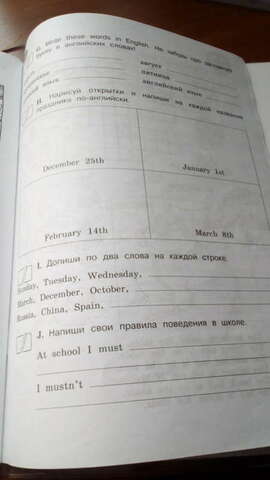 G. Write these words in English. Не забудь про заглавную
букву в английских словах!
август
пятница
английский язык
язык
H. Нарисуй открытки и напиши на каждой название
праздника по-английски.
December 25th
January 1st
February 14th
March 8th
I. Допиши по два слова на каждой строке.
Sunday, Tuesday, Wednesday,
March, December, October,
Russia, China, Spain,
J. Напиши свои правила поведения в школе.
At school I must
I mustn't